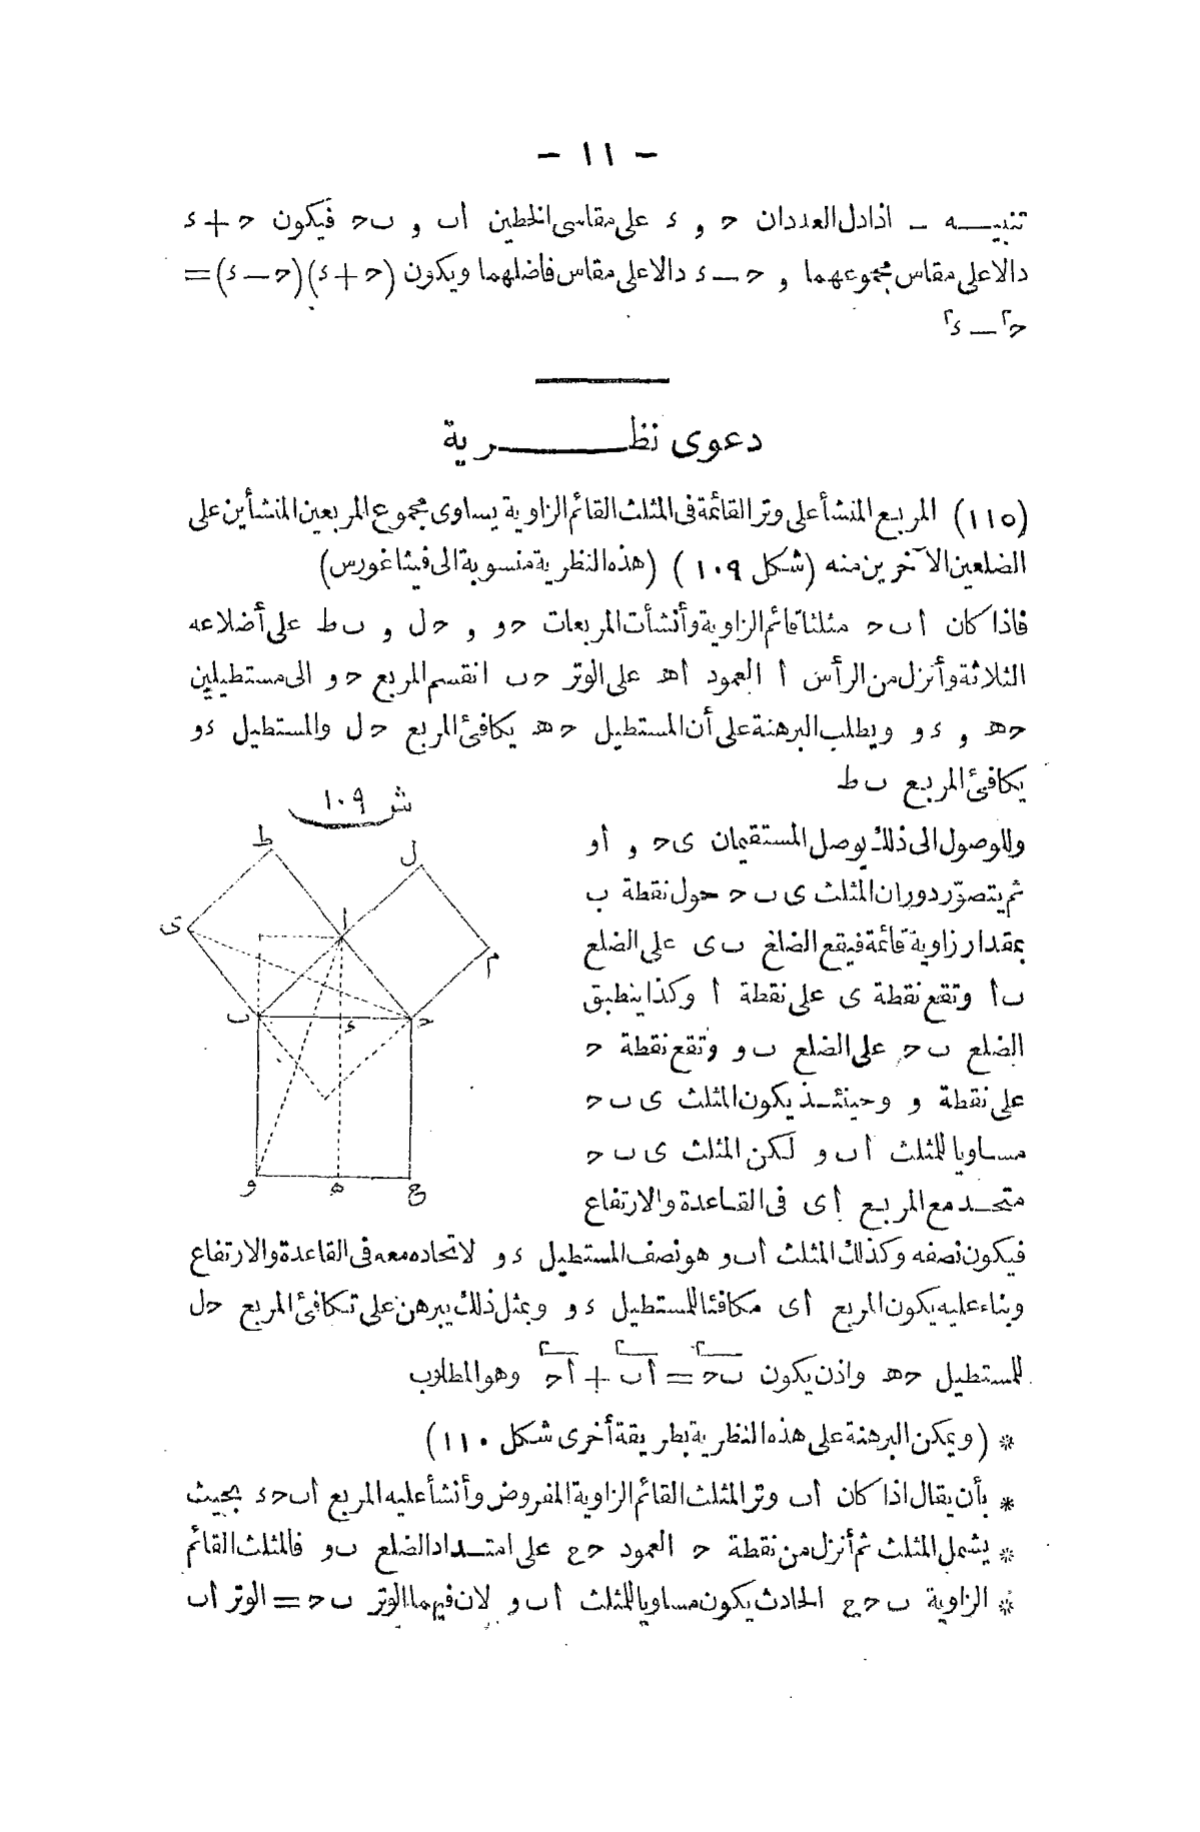 - ١١ -
تنبيـــه - اذا دل العددان ح و ء على مقاسى الخطين أب و بح فيكون ح+ء
دالا على مقاس مجموعهما و ح-ء دالا على مقاس فاضلهما ويكون (ح+ء)(ح-ء)=
ح٢-ء٢
دعوى نظــــرية
(١١٥) المربع المنشأ على وتر القائمة فى المثلث القائم الزاوية يساوى مجموع المربعين المنشأين على
الضلعين الآخرين منه (شكل ١٠٩) (هذه النظرية منسوبة الى فيثاغورس)
فاذا كان أبح مثلثا قائم الزاوية وأنشأت المربعات حو و حل و بط على أضلاعه
الثلاثة وأنزل من الرأس أ العمود أه على الوتر حب انقسم المربع حو الى مستطيلين
حه و ءو ويطلب البرهنة على أن المستطيل حه يكافئ المربع حل والمستطيل ءو
يكافئ المربع بط
ش ١٠٩
ط
ل
ا
ى
م
ب
ء
ح
و
ه
ع
وللوصول الى ذلك يوصل المستقيمان ىح و أو
ثم يتصوّر دوران المثلث ىبح حول نقطة ب
بمقدار زاوية قائمة فيقع الضلع بى على الضلع
بأ وتقع نقطة ى على نقطة أ وكذا ينطبق
الضلع بح على الضلع بو وتقع نقطة ح
على نقطة و وحينئــذ يكون المثلث ىبح
مساويا للمثلث أبو لكن المثلث ىبح
متحــد مع المربع أى فى القاعدة والارتفاع
فيكون نصفه وكذلك المثلث أبو هو نصف المستطيل ءو لاتحاده معه فى القاعدة والارتفاع
وبناء عليه يكون المربع أى مكافئا للمستطيل ءو وبمثل ذلك يبرهن على تكافئ المربع حل
للمستطيل حه واذن يكون بح٢=أب٢+أح٢ وهو المطلوب
* (ويمكن البرهنة على هذه النظرية بطريقة أخرى شكل ١١٠)
* بأن يقال اذا كان أب وتر المثلث القائم الزاوية المفروض وأنشأ عليه المربع أبحء بحيث
* يشمل المثلث ثم أنزل من نقطة ح العمود حع على امتــداد الضلع بو فالمثلث القائم
* الزاوية بحع الحادث يكون مساويا للمثلث أبو لان فيهما الوتر بح=الوتر أب